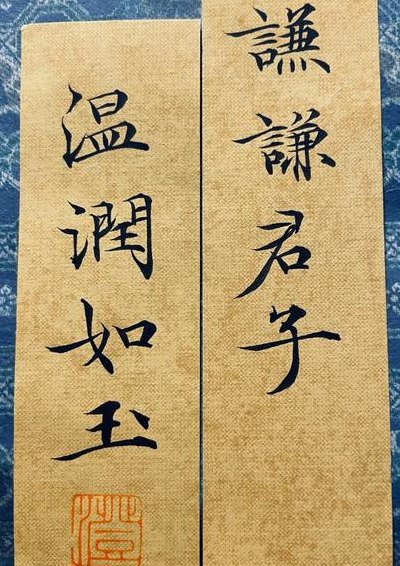 謙謙君子
温潤如玉